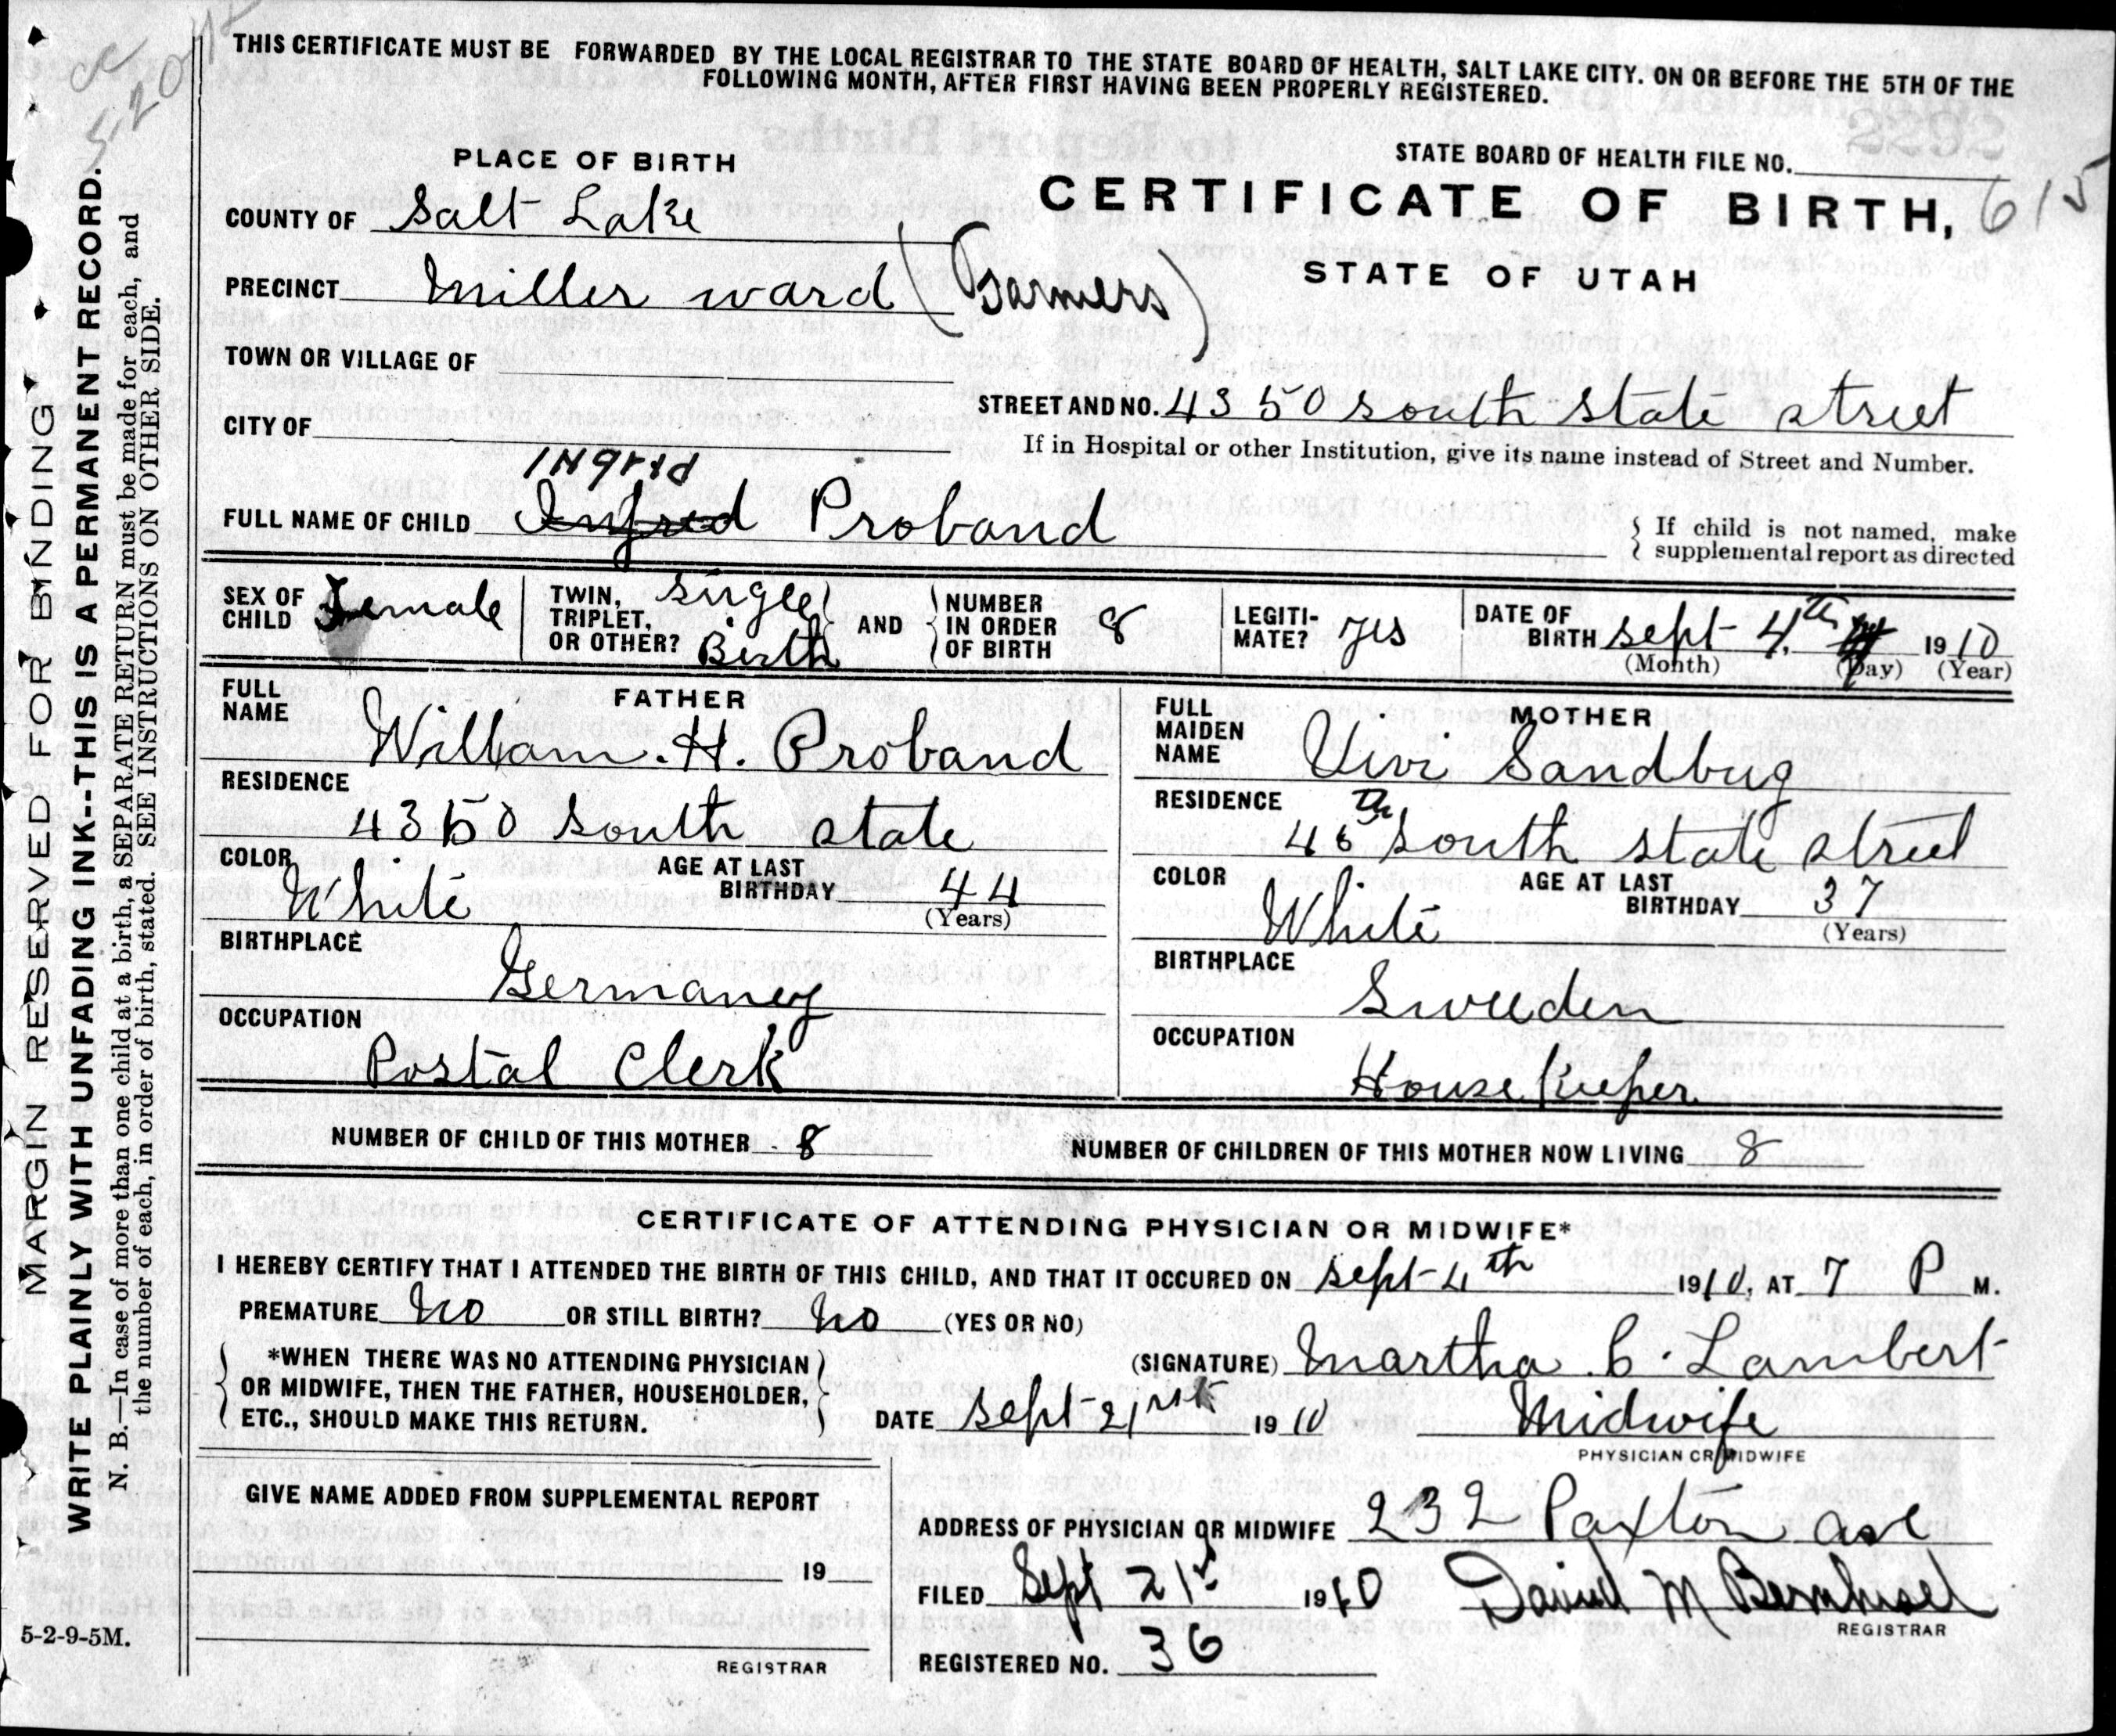 THIS CERTIFICATE MUST BE FORWARDED BY THE LOCAL REGISTRAR TO THE STATE BOARD OF HEALTH, SALT LAKE CITY. ON OR BEFORE THE 5TH OF THE
FOLLOWING MONTH, AFTER FIRST HAVING BEEN PROPERLY REGISTERED.
PLACE OF BIRTH
STATE BOARD OF HEALTH FILE NO.
COUNTY OF Salt Lake
CERTIFICATE OF BIRTH, 615
PRECINCT Miller ward (Farmers)
STATE OF UTAH
TOWN OR VILLAGE OF
STREET AND NO. 4350 south state street
CITY OF
If in Hospital or other Institution, give its name instead of Street and Number.
INgrid
FULL NAME OF CHILD Ingfred Proband
If child is not named, make
supplemental report as directed
SEX OF CHILD Female
TWIN, TRIPLET, OR OTHER? single Birth
AND
NUMBER IN ORDER OF BIRTH 8
LEGITIMATE? yes
DATE OF BIRTH sept 4th 1910
(Month) (Day) (Year)
FATHER
FULL NAME William. H. Proband
RESIDENCE
4350 south state
COLOR White
AGE AT LAST BIRTHDAY 44
(Years)
BIRTHPLACE
Germaney
OCCUPATION
Postal Clerk
MOTHER
FULL MAIDEN NAME Vivi Sandbug
RESIDENCE
south state street
COLOR White
AGE AT LAST BIRTHDAY 37
(Years)
BIRTHPLACE
Sweeden
OCCUPATION
House Keeper
NUMBER OF CHILD OF THIS MOTHER 8
NUMBER OF CHILDREN OF THIS MOTHER NOW LIVING 8
CERTIFICATE OF ATTENDING PHYSICIAN OR MIDWIFE*
I HEREBY CERTIFY THAT I ATTENDED THE BIRTH OF THIS CHILD, AND THAT IT OCCURED ON sept 4th 1910, AT 7 P M.
PREMATURE No OR STILL BIRTH? No (YES OR NO)
*WHEN THERE WAS NO ATTENDING PHYSICIAN
OR MIDWIFE, THEN THE FATHER, HOUSEHOLDER,
ETC., SHOULD MAKE THIS RETURN.
(SIGNATURE) Martha C. Lambert
DATE sept 21 1910
Midwife
PHYSICIAN OR MIDWIFE
GIVE NAME ADDED FROM SUPPLEMENTAL REPORT
19
REGISTRAR
ADDRESS OF PHYSICIAN OR MIDWIFE 232 Paxton ave
FILED Sept 21st 1910 David M Bernhisel
REGISTRAR
REGISTERED NO. 36
MARGIN RESERVED FOR BINDING
WRITE PLAINLY WITH UNFADING INK--THIS IS A PERMANENT RECORD.
N. B.—In case of more than one child at a birth, a SEPARATE RETURN must be made for each, and
the number of each, in order of birth, stated. SEE INSTRUCTIONS ON OTHER SIDE.
5-2-9-5M.